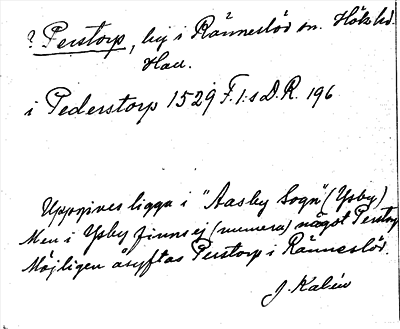 ? Perstorp, by i Ränneslöv sn. Höks hd.
Hall.
i Pederstorp 1529 F.I:s D.R. 196
Uppgives ligga i "Aasby Sogn" (Ysby)
Men i Ysby finns ej (numera) något Perstorp
Möjligen åsyftas Perstorp i Ränneslöv.
J. Kalén